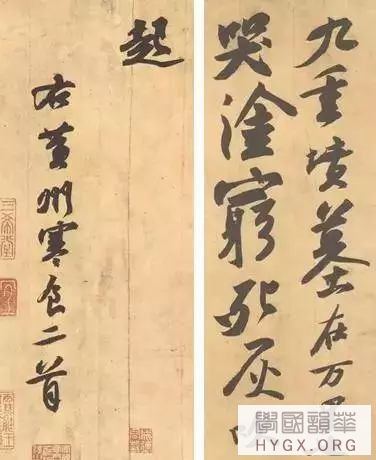 九重墳墓在万
哭塗窮死灰
起
右黃州寒食二首
三希堂
學國韻華
HYGX.ORG